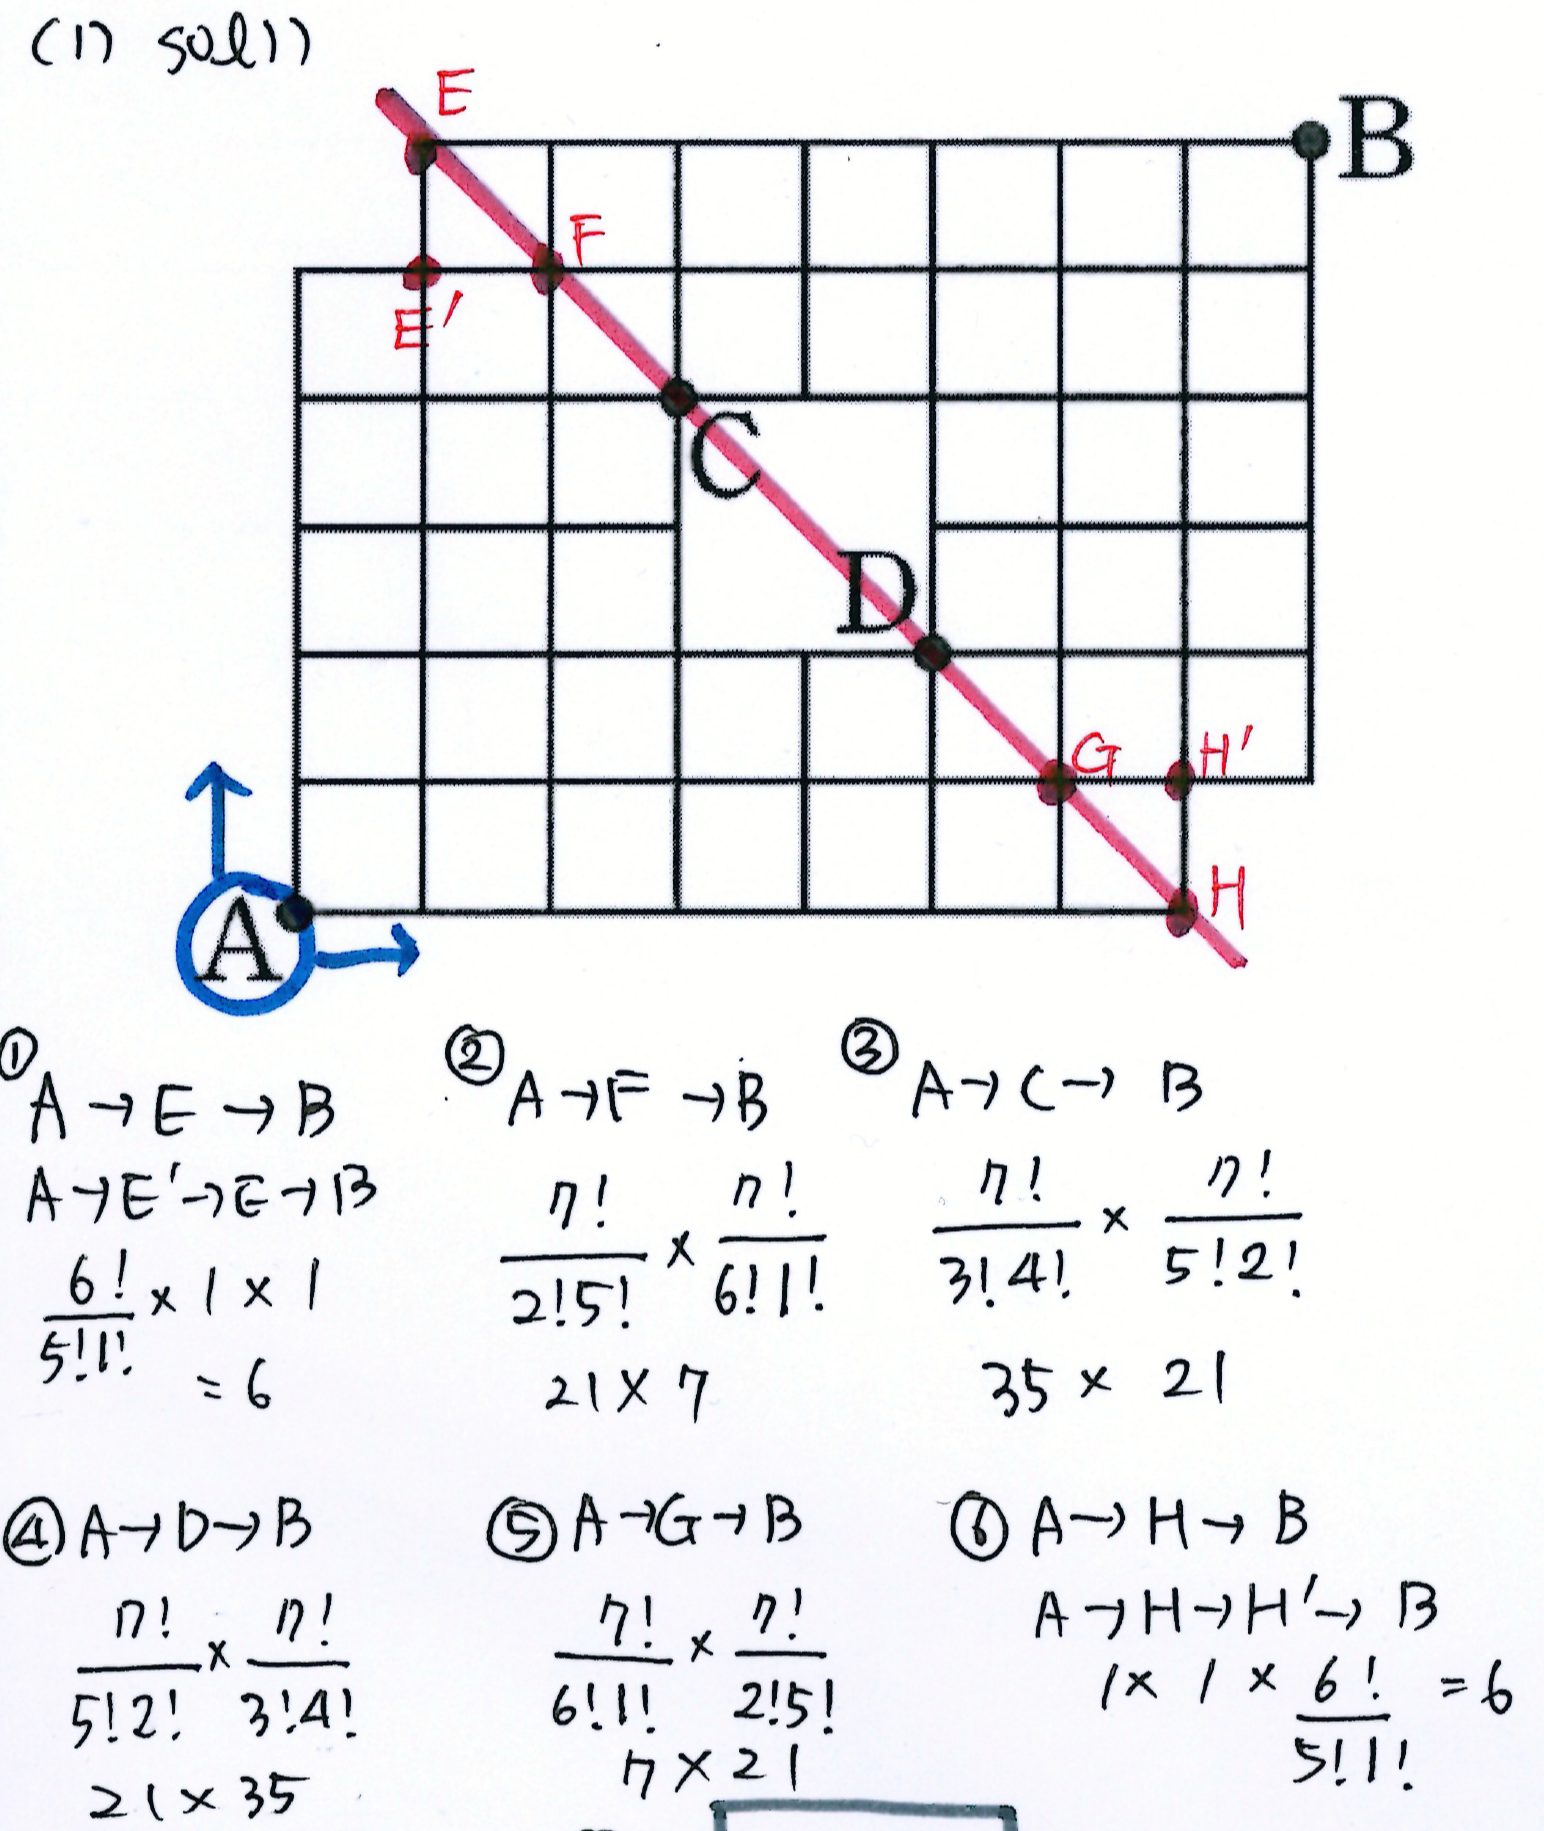 (1) sol1)
E
B
F
E'
C
D
G H'
H
A
① A → E → B
A → E' → E → B
6!/5!1! × 1 × 1
= 6
② A → F → B
7!/2!5! × 7!/6!1!
21 × 7
③ A → C → B
7!/3!4! × 7!/5!2!
35 × 21
④ A → D → B
7!/5!2! × 7!/3!4!
21 × 35
⑤ A → G → B
7!/6!1! × 7!/2!5!
7 × 21
⑥ A → H → B
A → H → H' → B
1 × 1 × 6!/5!1! = 6